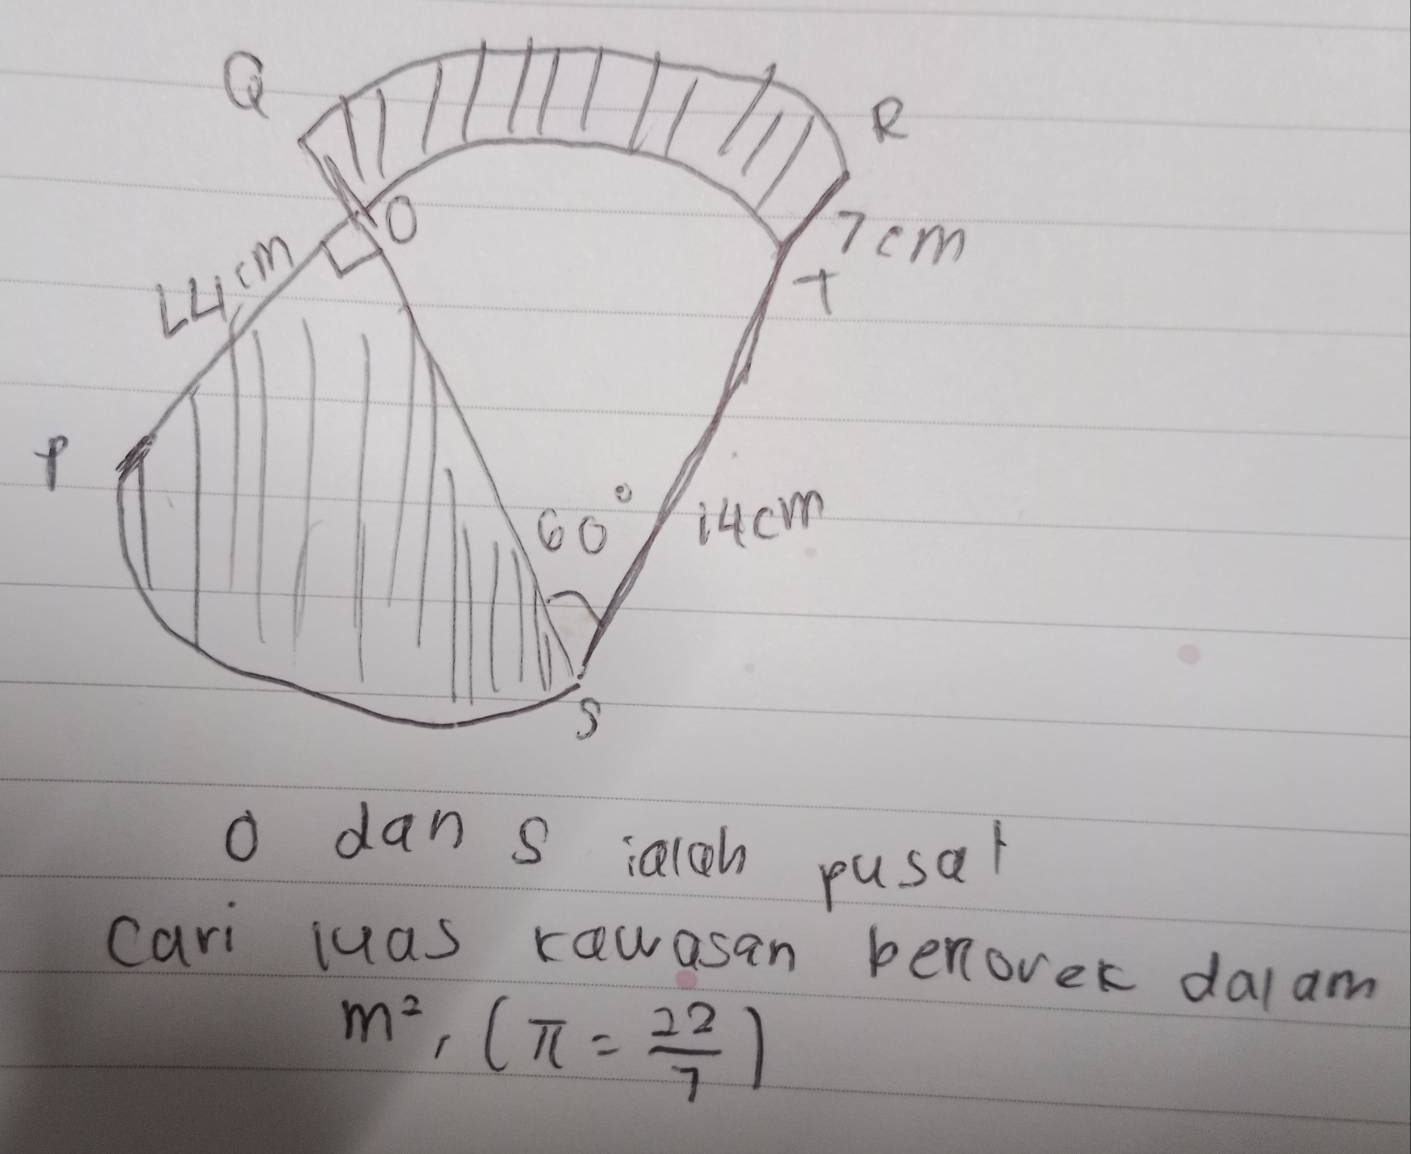 Q
R
O
7cm
14cm
T
P
60°
14cm
S
O dan S ialah pusat
Cari luas kawasan berlorek dalam
m², (π = 22/7)